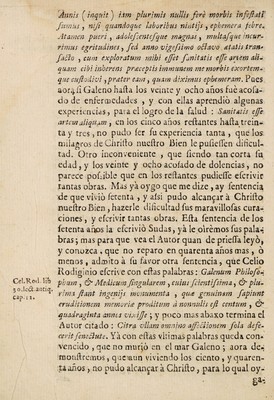 Annis (inquit) tùm plurimis nullis ferè morbis infestati
sumus, nisi quandoque laboribus nixijs, ephemera febre.
Atamen pueri, adolescentesque magnas, multasque incur-
rimus egritudines, sed anno vigesimo octavo ætatis tran-
sacto, cum exploratum mihi esset sanitatis esse artem ali-
quam eibi inherens præceptis immunem me morbis exortem-
que custodivi, præter eam, quam diximus ephemeram. Pues
aora, si Galeno hasta los veinte y ocho años fuè acosa-
do de enfermedades, y con ellas aprendiò algunas
experiencias, para el logro de la salud: Sanitatis esse
artem aliquam, en los cinco años restantes hasta trein-
ta y tres, no pudo ser su experiencia tanta, que los
milagros de Christo nuestro Bien le pusiessen dificul-
tad. Otro inconveniente, que siendo tan corta su
edad, y los veinte y ocho acosado de dolencias, no
parece possible que en los restantes pudiesse escrivir
tantas obras. Mas yà oygo que me dize, ay sentencia
de que viviò setenta, y assi pudo alcançar à Christo
nuestro Bien, hazerle dificultad sus maravillosas cura-
ciones, y escrivir tantas obras. Esta sentencia de los
setenta años la escriviò Sudas, yà le olrèmos sus pala-
bras; mas para que vea el Autor quan de priessa leyò,
y conozca, que no reparo en quarenta años mas, ò
menos, admito à su favor otra sentencia, que Celio
Rodiginio escrive con estas palabras: Galenum Philoso-
Cel. Rod. lib
30. lect. antiq.
cap. 12.
phum, & Medicum singularem, cuius scientissima, & plu-
rima stant ingenijs monumenta, quæ genuinam sapiunt
eruditionem memoria proditum à nonnullis est centum, &
quadraginta annos vixisse; y poco mas abaxo termina el
Autor citado: Citra ullam omnino affectionem sola defe-
cerit senectute. Yà con estas vltimas palabras queda con-
vencido, que no muriò en el mar Galeno; aora de-
monstremos, que aun viviendo los ciento, y quaren-
ta años, no pudo alcançar à Christo, para lo qual oy-
ga-